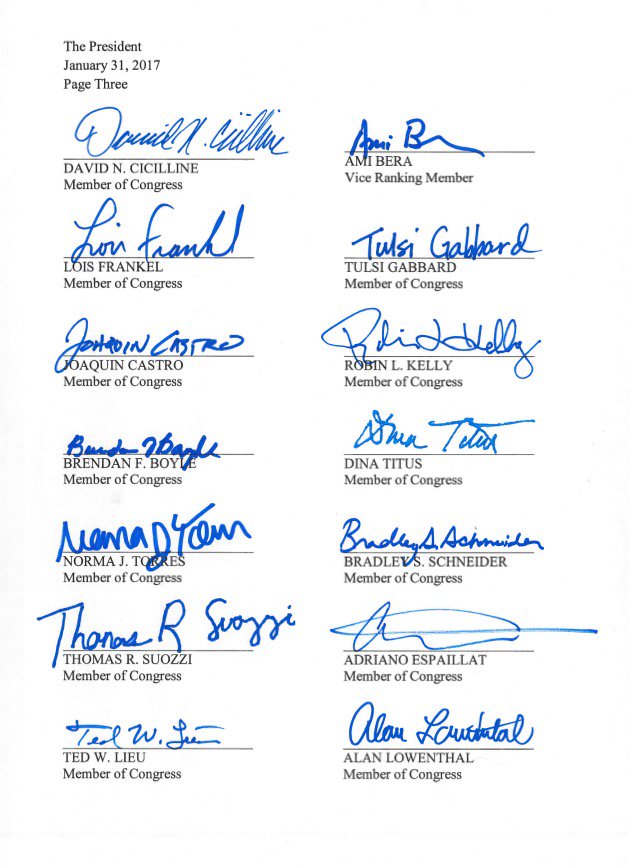 The President
January 31, 2017
Page Three
David N. Cicilline
DAVID N. CICILLINE
Member of Congress
Ami Bera
AMI BERA
Vice Ranking Member
Lois Frankel
LOIS FRANKEL
Member of Congress
Tulsi Gabbard
TULSI GABBARD
Member of Congress
Joaquin Castro
JOAQUIN CASTRO
Member of Congress
Robin L Kelly
ROBIN L. KELLY
Member of Congress
Brendan F Boyle
BRENDAN F. BOYLE
Member of Congress
Dina Titus
DINA TITUS
Member of Congress
Norma J Torres
NORMA J. TORRES
Member of Congress
Bradley S. Schneider
BRADLEY S. SCHNEIDER
Member of Congress
Thomas R Suozzi
THOMAS R. SUOZZI
Member of Congress
ADRIANO ESPAILLAT
Member of Congress
Ted W. Lieu
TED W. LIEU
Member of Congress
Alan Lowenthal
ALAN LOWENTHAL
Member of Congress